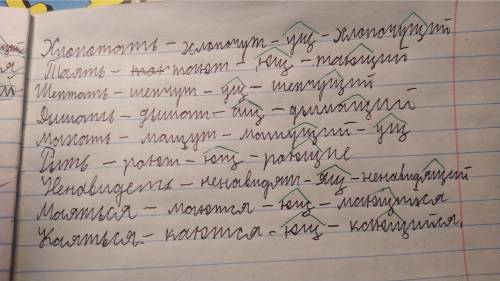 Хлопотать – хлопочут – ущ – хлопочущий
Таять – тают – ющ – тающий
Шептать – шепчут – ущ – шепчущий
Дышать – дышат – ащ – дышащий
Махать – машут – машущий – ущ
Рыть – роют – ющ – роющие
Ненавидеть – ненавидят – ящ – ненавидящий
Маяться – маются – ющ – мающихся
Каяться – каются – ющ – кающийся.